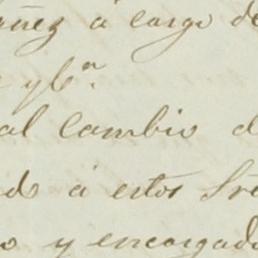 á cargo de
y
al cambio d
á estos Sre
o y encargado